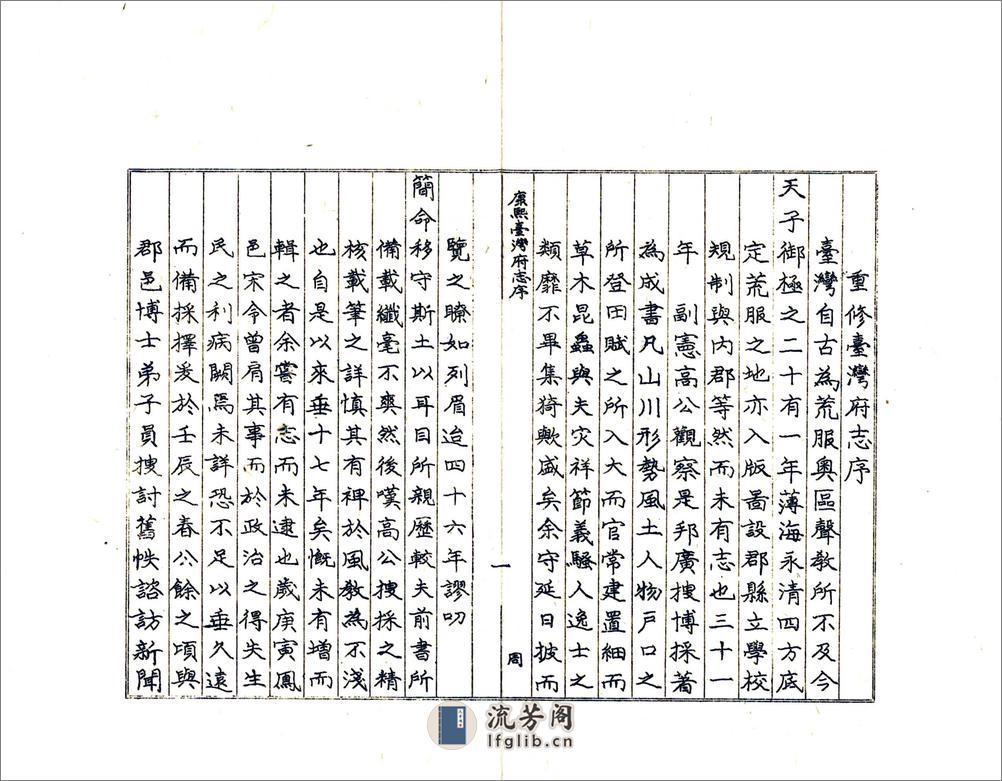 重修臺灣府志序
臺灣自古為荒服奧區聲教所不及今
天子御極之二十有一年薄海永清四方底
定荒服之地亦入版圖設郡縣立學校
規制與內郡等然而未有志也三十一
年 副憲高公觀察是邦廣搜博採著
為成書凡山川形勢風土人物戶口之
所登田賦之所入大而官常建置細而
草木昆蟲與夫灾祥節義騷人逸士之
類靡不畢集猗歟盛矣余守延日披而
康熙臺灣府志序
一
周
覽之瞭如列眉迨四十六年謬叨
簡命移守斯土以耳目所親歷較夫前書所
備載纖毫不爽然後嘆高公搜採之精
核載筆之詳慎其有裨於風教為不淺
也自是以來垂十七年矣慨未有增而
輯之者余嘗有志而未逮也歲庚寅鳳
邑宋令曾肩其事而於政治之得失生
民之利病闕焉未詳恐不足以垂久遠
而備採擇爰於壬辰之春公餘之頃與
郡邑博士弟子員搜討舊帙諮訪新聞
流芳阁
lfglib.cn